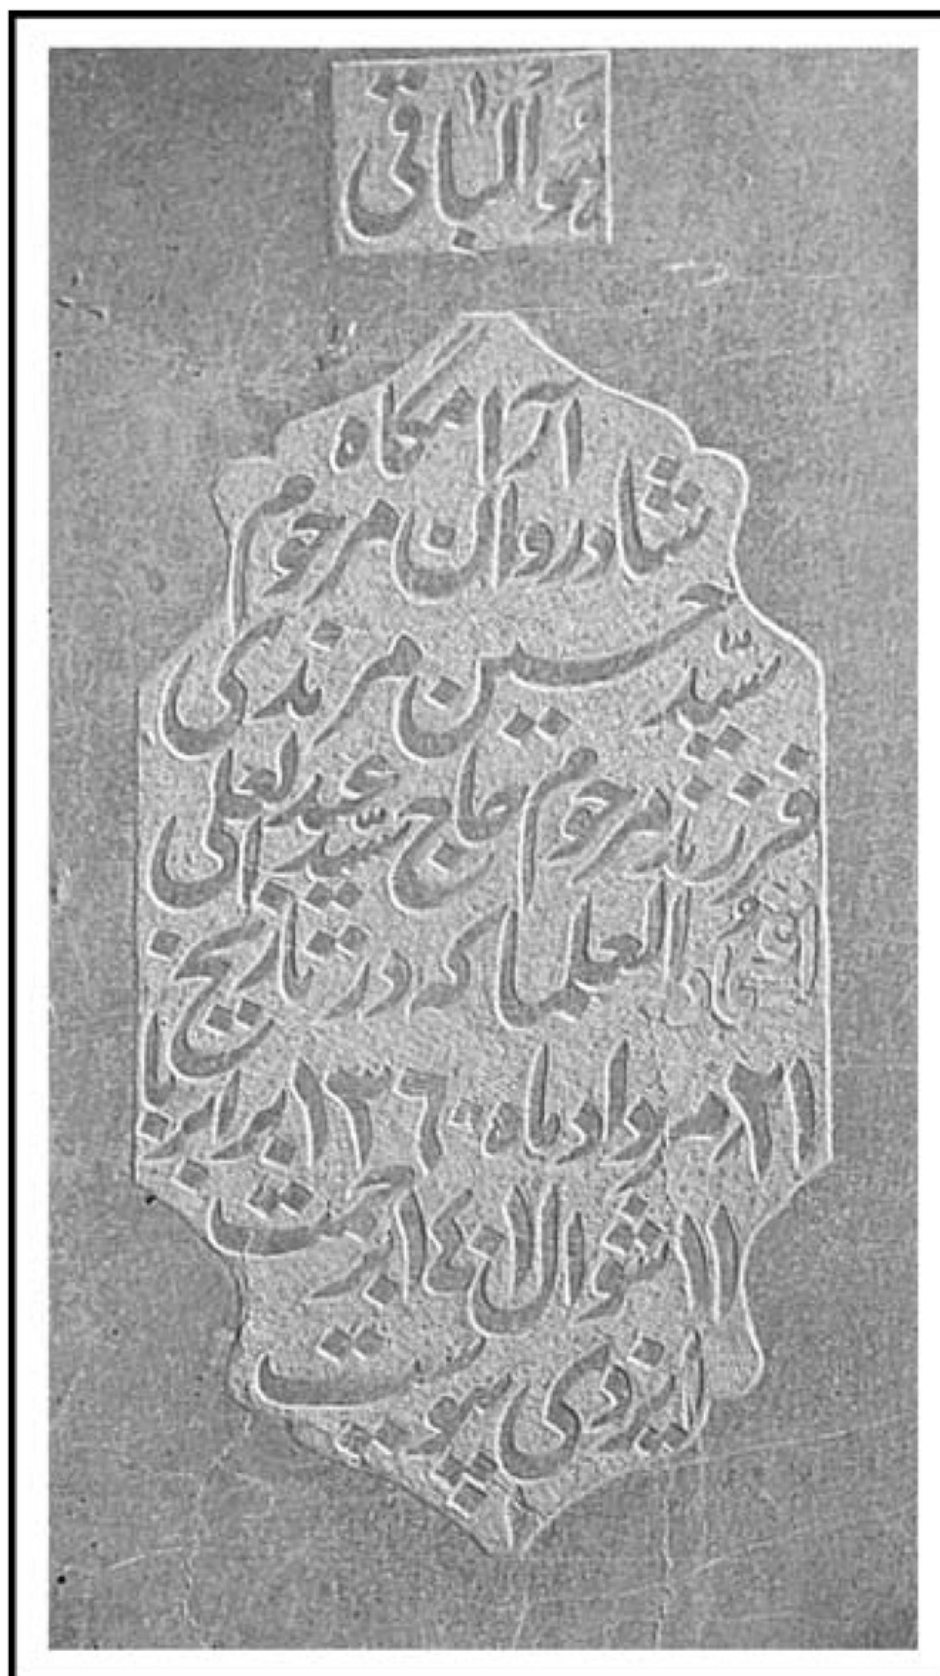 هُوَ الباقی
آرامگاه
شادروان مرحوم
سیّد حسین مرندی
فرزند مرحوم حاج سیّد عبدالعلی
العلما که در تاریخ
۲۱ مرداد ماه ۱۳۶۰ برابر با
۱۱ شوال ۱۴۰۱ برحمت
ایزدی پیوست